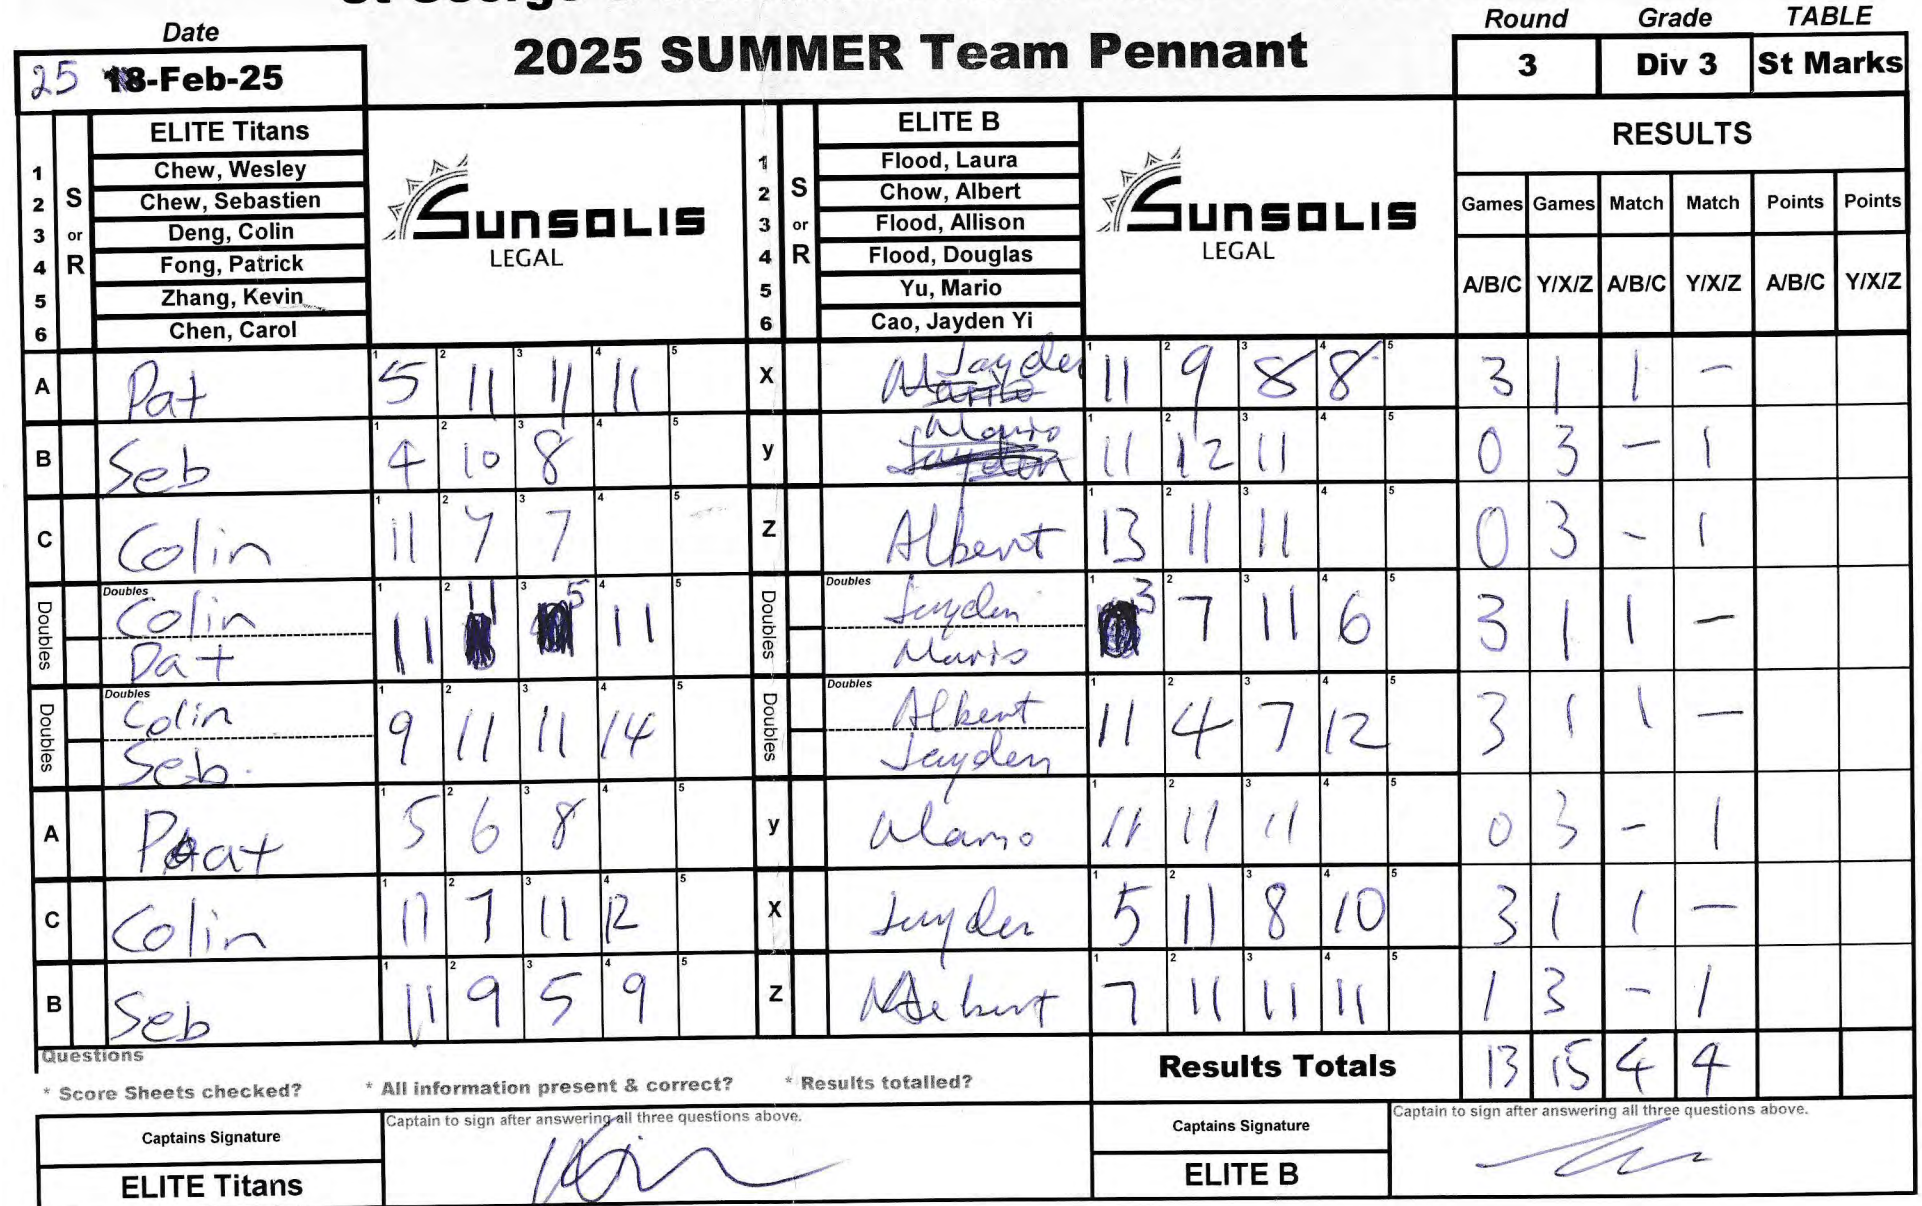 2025 SUMMER Team Pennant
Date
25 18-Feb-25
Round Grade TABLE
3 Div 3 St Marks
ELITE Titans
S or R
1 Chew, Wesley
2 Chew, Sebastien
3 Deng, Colin
4 Fong, Patrick
5 Zhang, Kevin
6 Chen, Carol
SUNSOLIS
LEGAL
ELITE B
S or R
1 Flood, Laura
2 Chow, Albert
3 Flood, Allison
4 Flood, Douglas
5 Yu, Mario
6 Cao, Jayden Yi
SUNSOLIS
LEGAL
RESULTS
Games Games Match Match Points Points
A/B/C Y/X/Z A/B/C Y/X/Z A/B/C Y/X/Z
A Pat 5 11 11 11 X Jayden 11 9 8 8 3 1 1 -
B Seb 4 10 8 y Mario 11 12 11 0 3 - 1
C Colin 11 7 7 Z Albert 13 11 11 0 3 - 1
Doubles Doubles Colin 11 11 5 11 Doubles Doubles Jayden 3 7 11 6 3 1 1 -
Pat Mario
Doubles Doubles Colin 9 11 11 14 Doubles Doubles Albert 11 4 7 12 3 1 1 -
Seb. Jayden
A Pat 5 6 8 y Mario 11 11 11 0 3 - 1
C Colin 11 7 11 12 X Jayden 5 11 8 10 3 1 1 -
B Seb 11 9 5 9 Z Albert 7 11 11 11 1 3 - 1
Questions
* Score Sheets checked? * All information present & correct? * Results totalled?
Results Totals 13 15 4 4
Captains Signature
Captain to sign after answering all three questions above.
ELITE Titans
Captains Signature
Captain to sign after answering all three questions above.
ELITE B